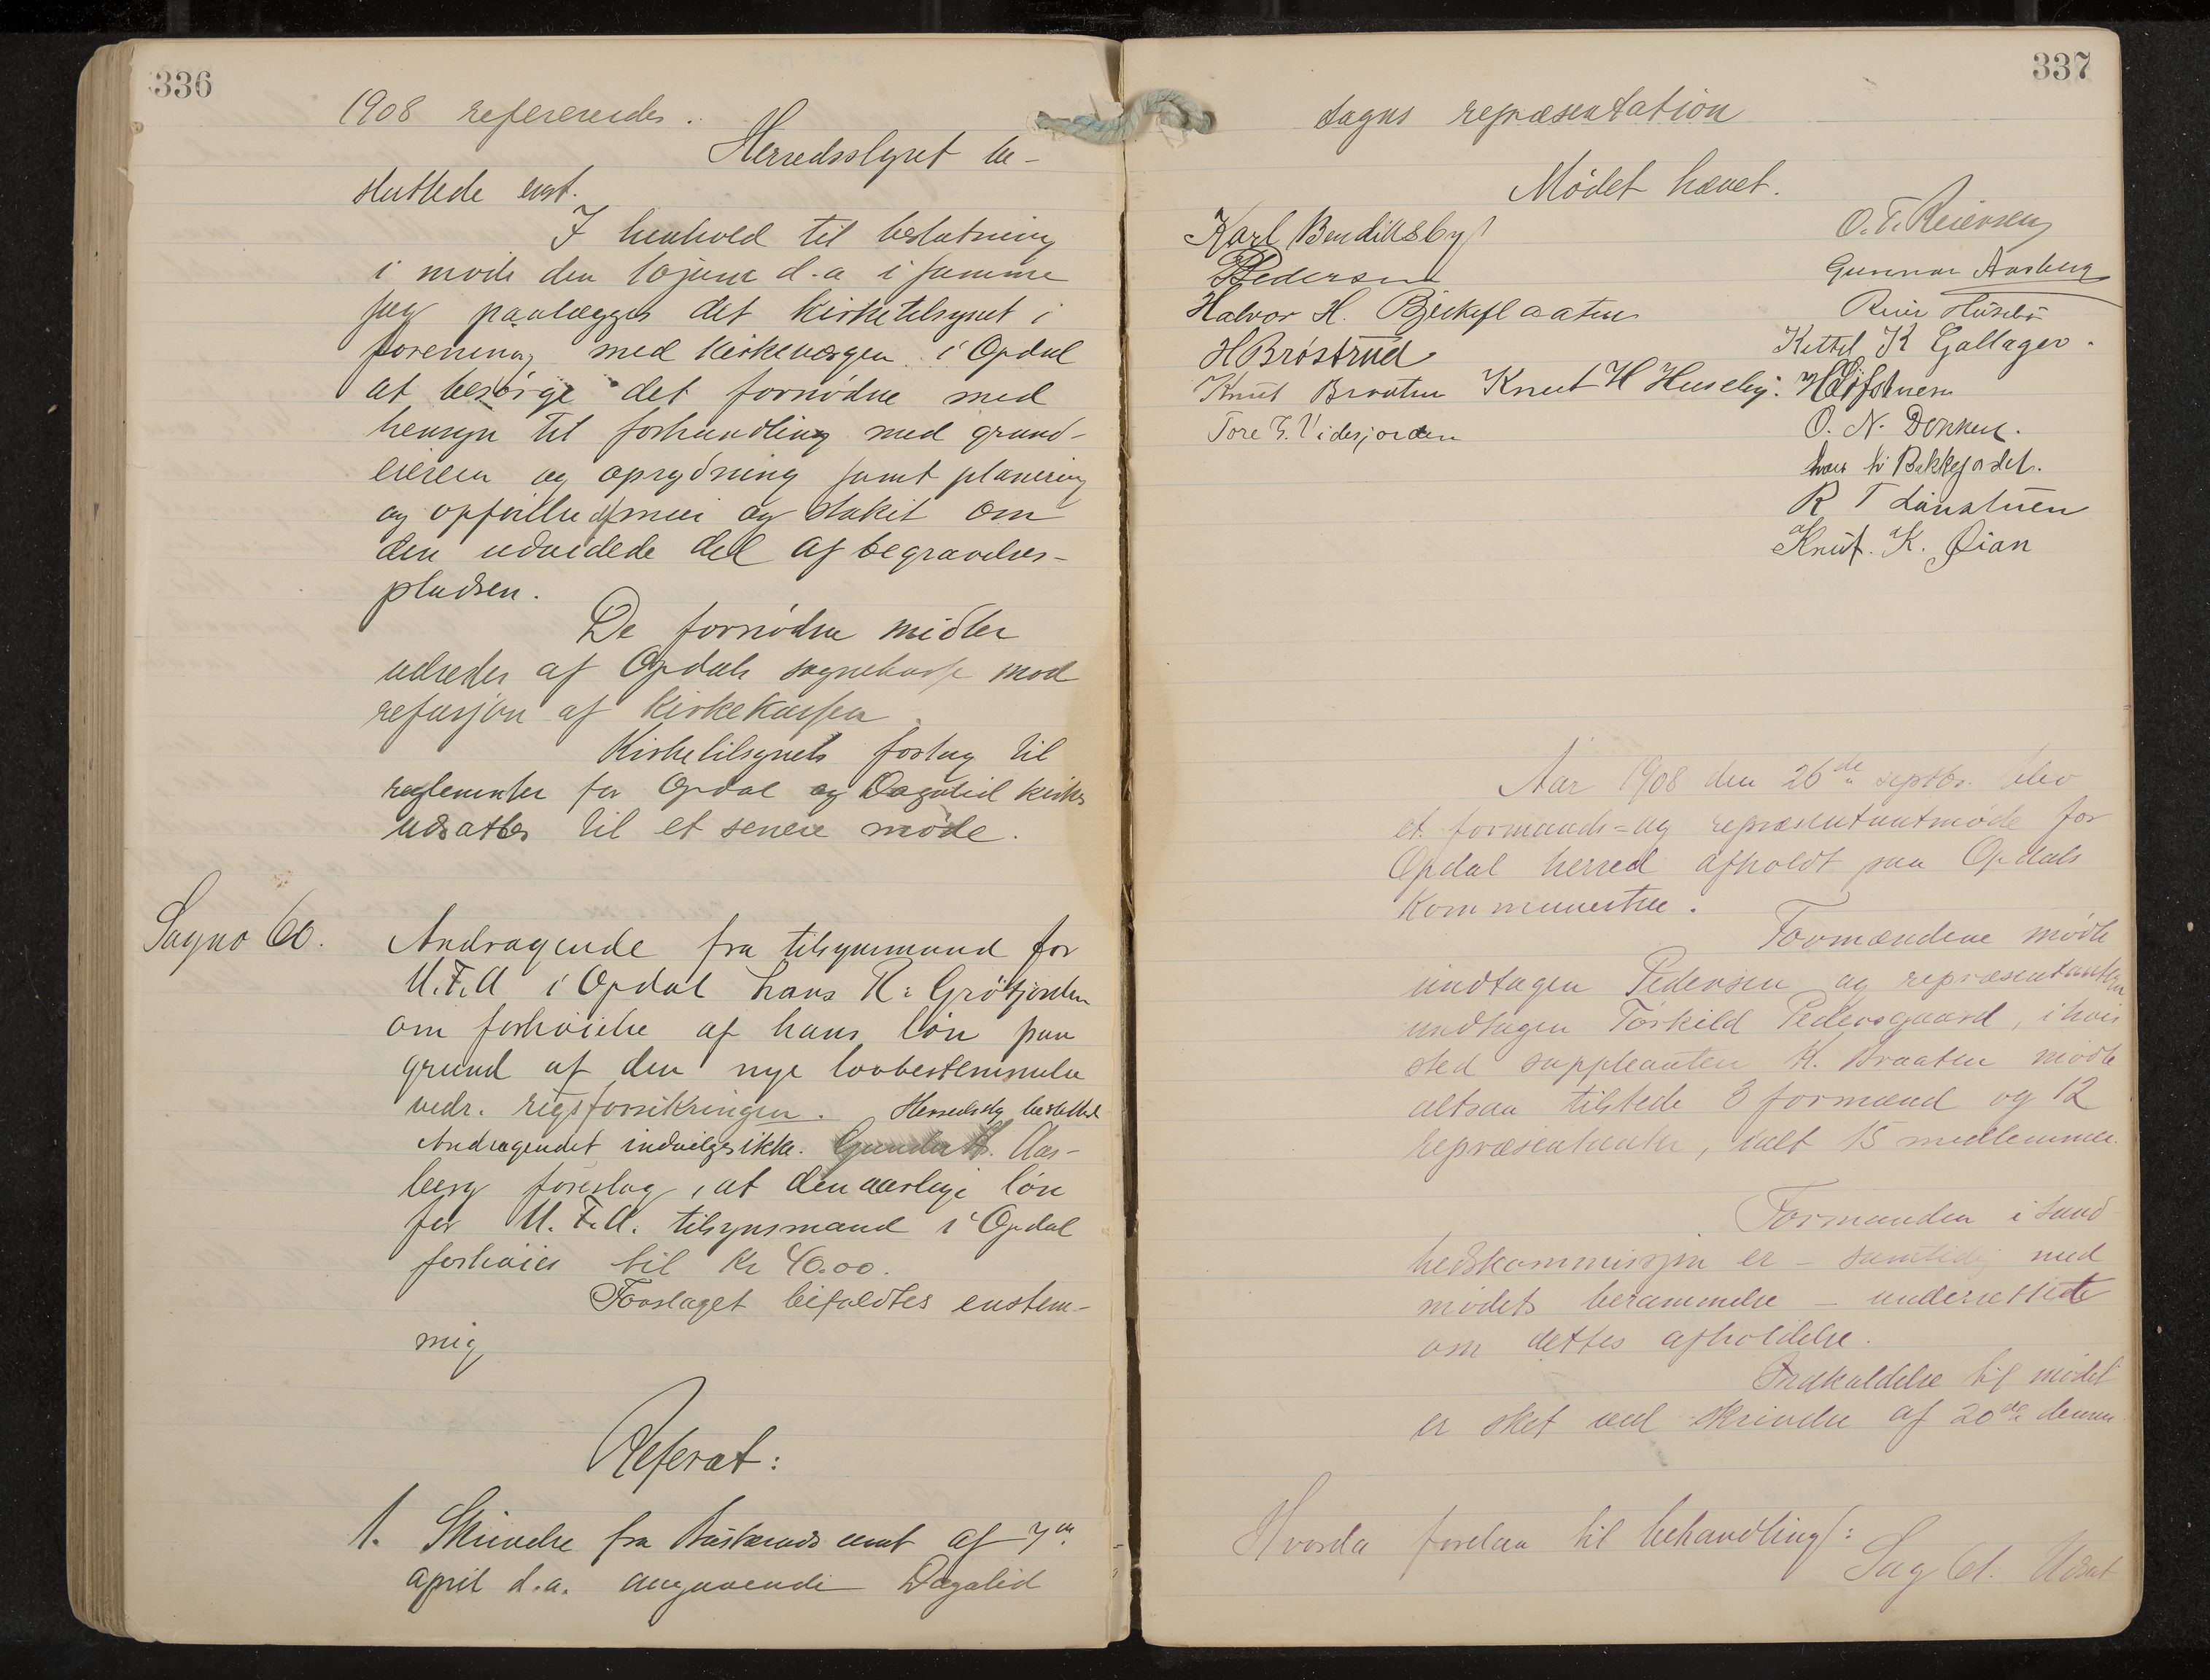 336
1908 refereredes.
Herredsstyret be-
sluttede enst.
I henhold til beslutning
i møde den 10 juni d.a i samme
sag paalægges det kirketilsynet i
forening med kirkeværgen i Opdal
at besørge det fornødne med
hensyn til forhandling med grund-
eieren og oprydning samt planering
og opførelse af mur og stakit om
den udvidede del af begravelses-
pladsen.
De fornødne midler
udredes af Opdals sognekasse mod
refusjon af kirkekassen.
Kirketilsynets forslag til
reglementer for Opdal og Dagalid kirker
udsattes til et senere møde.
Sagno 60.
Andragende fra tilsynsmand for
U.F.A i Opdal Hans R. Grøtjorden
om forhøielse af hans løn paa
grund af den nye lovbestemmelse
vedr. rigsforsikringen. Herredssty besluttet
Andragendet indvilges ikke. Aas-
berg foreslog, at den aarlige løn
for U.F.A. tilsynsmand i Opdal
forhøies til Kr 40.00.
Forslaget bifaldtes enstem-
mig
Referat:
1. Skrivelse fra Buskeruds amt af 7de
april d.a. angaaende Dagalid
337
sogns repræsentation
Mødet hævet.
Karl Bendiksby
Pedersen
Halvor H. Bjerkeflaaten
H Brøstrud
Knut Braaten Knut H Huseby.
Tore G. Videsjorden
O. T. Reiersen
Gunnar Aasberg
Reier Husebø
Kittel K Gallager.
H Løfstuen
O. N. Donken.
Hans H Bekkejordet.
R T Lanstuen
Knut. K. Øian
Aar 1908 den 26de septbr. blev
et formands- og repræsentantmøde for
Opdal herred afholdt paa Opdals
Kommunestue.
Formændene mødte
undtagen Pedersen og repræsentanterne
undtagen Torkild Pedersgaard, i hvis
sted suppleanten K. Braaten mødte
altsaa tilstede 3 formænd og 12
repræsentanter, ialt 15 medlemmer.
Formanden i sund-
hedskommissjon er – samtidig med
mødets berammelse – underrettet
om dettes afholdelse.
Indkaldelse til mødet
er sket ved skrivelse af 20de dennes
Hvorda forelaa til behandling:
Sag 61. Udsat